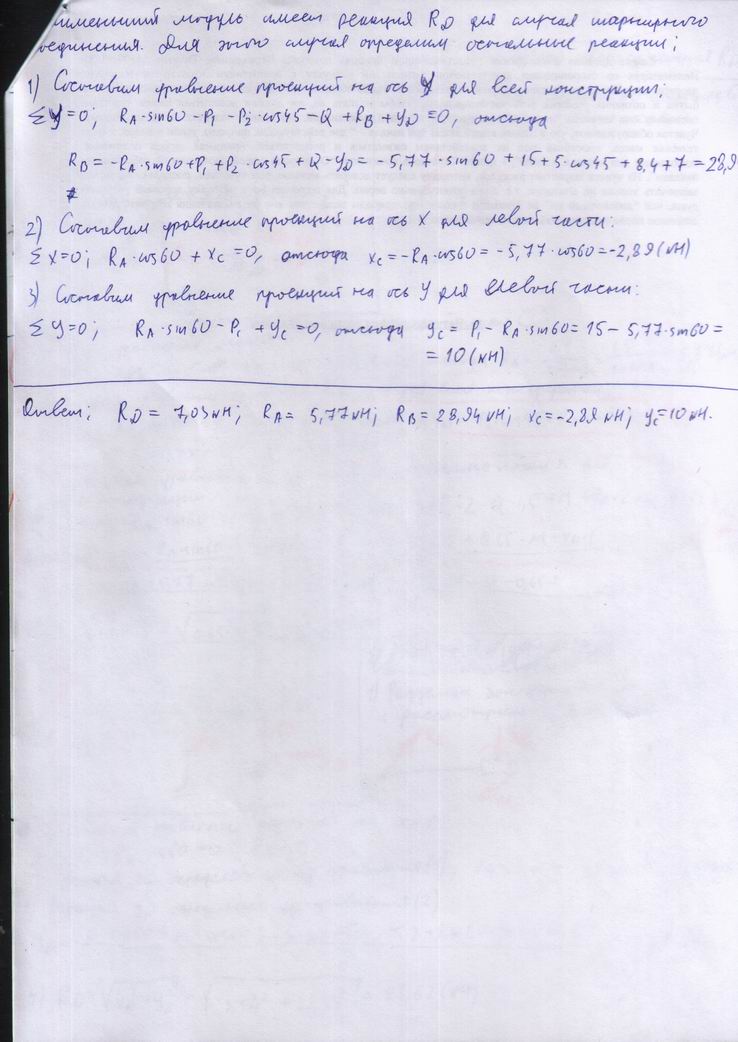 именьший модуль имеет реакция R_D для случая шарнирного
оединения. Для этого случая определим остальные реакции;
1) Составим уравнение проекций на ось Y для всей конструкции;
ΣY=0; R_A·sin60 - P_1 - P_2·cos45 - Q + R_B + Y_D = 0, отсюда
R_B = -R_A·sin60 + P_1 + P_2·cos45 + Q - Y_D = -5,77·sin60 + 15 + 5·cos45 + 8,4 + 7 = 28,9
2) Составим уравнение проекций на ось X для левой части:
ΣX=0; R_A·cos60 + X_C = 0, отсюда X_C = -R_A·cos60 = -5,77·cos60 = -2,89(кН)
3) Составим уравнение проекций на ось Y для левой части:
ΣY=0; R_A·sin60 - P_1 + Y_C = 0, отсюда Y_C = P_1 - R_A·sin60 = 15 - 5,77·sin60 =
= 10(кН)
Ответ; R_D = 7,03кН; R_A = 5,77кН; R_B = 28,94кН; X_C = -2,89кН; Y_C = 10кН.